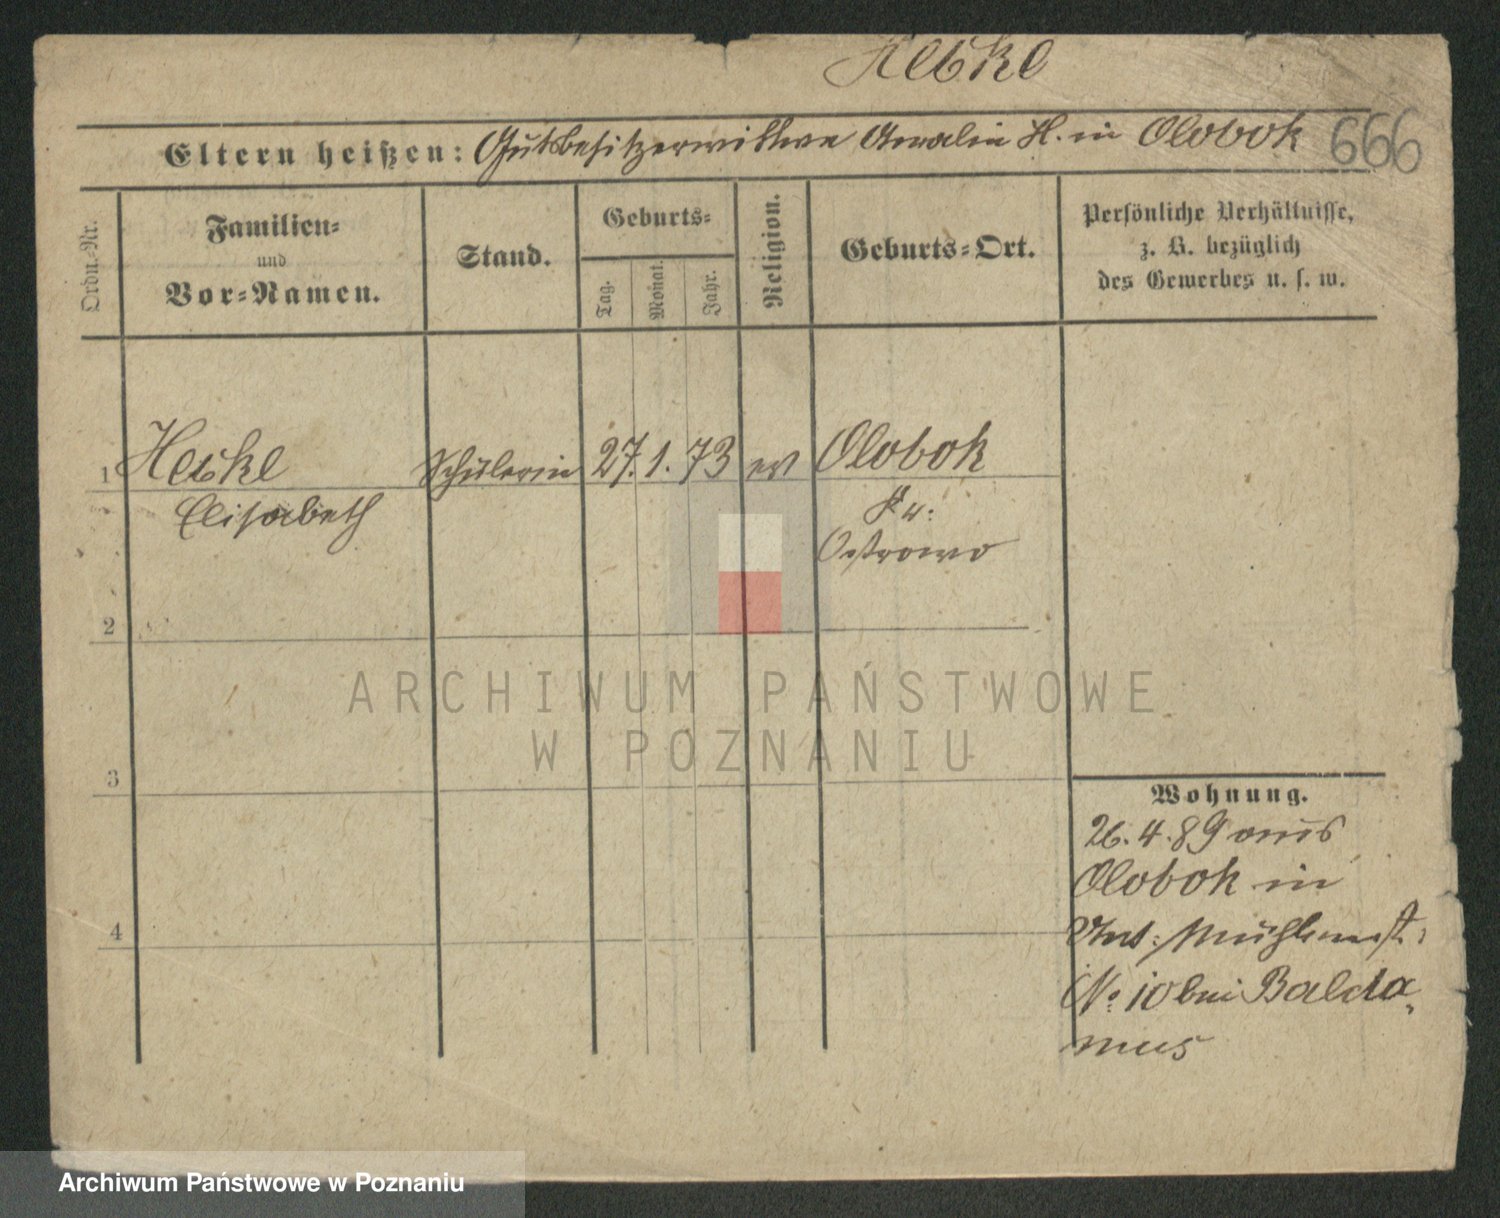 Heckel
Eltern heißen: Gutsbesitzerwittwe Amalie H. in Olobok 666
Ordn.-Nr.
Familien-
und
Vor-Namen.
Stand.
Geburts-
Tag. Monat. Jahr.
Religion.
Geburts-Ort.
Persönliche Verhältnisse,
z. B. bezüglich
des Gewerbes u. s. w.
1 Schülerin 27. 1. 73 ev Olobok
Elisabeth Kr:
Ostrowo
2
3
4
Wohnung.
26. 4. 89 aus
Olobok in
Mühlenst:
No 10 bei Balda
mus
ARCHIWUM PAŃSTWOWE
W POZNANIU
Archiwum Państwowe w Poznaniu